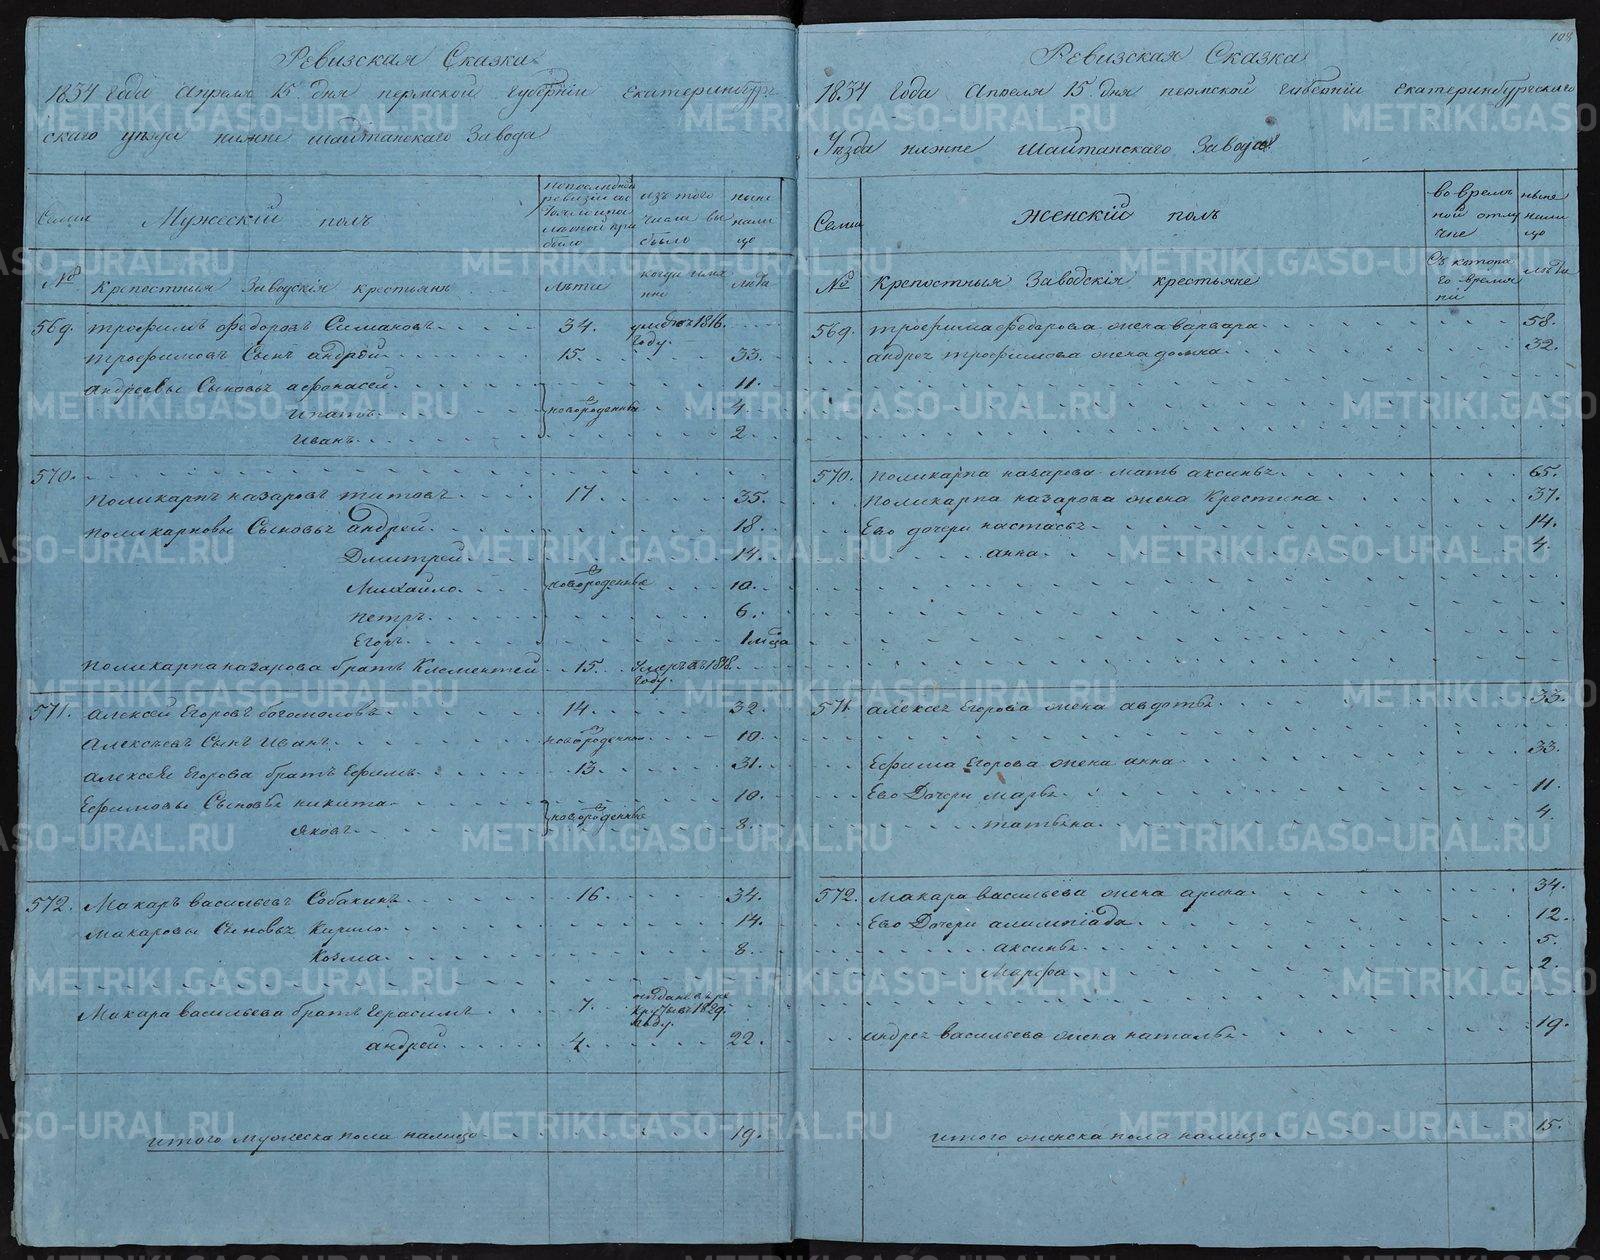 Ревизская Сказка
1834 Года Апреля 15 дня пермской губернiи Екатеринбург
скаго уезда нижне шайтанскаго Завода
Семьи
Мужескiй полъ
изъ того числа вы было
ныне нали цо
№
Крепостныя Заводскiя крестьяне
Лета
когда имя нно
лета
569. трофимъ федоровъ Симановъ 34. 1816. году.
трофимовъ Сынъ андрей 15. 33.
андреевы Сыновья афонасей 11.
ипатъ новорожденные 4.
Иванъ 2.
570.
поликарпъ назаровъ титовъ 17. 35.
поликарповы Сыновья андрей 18.
Дмитрей 14.
Михайло новорожденные 10.
петръ 6.
Егоръ 1 м﻿ца
поликарпа назарова братъ Клементей 15. умеръ въ 1818. году.
571. алексей Егоровъ богомоловъ 14. 32.
алексеевъ Сынъ Иванъ 10.
алексея Егорова братъ Ефимъ 13. 31.
Ефимовы Сыновья никита 10.
яковъ новорожденные 8.
572. Макаръ васильевъ Собакинъ 16. 34.
Макаровы Сыновья Кирило 14.
Козма 8.
Макара васильева братъ герасимъ 7. отданъ въ ре круты въ 1829. году.
андрей 4. 22.
итого Мужеска пола налицо 19.
103
Ревизская Сказка
1834 Года Апреля 15 дня пермской губернiи Екатеринбургскаго
Уезда нижне Шайтанскаго Завода
Семьи
Женскiй полъ
во врем﻿ ной отлу чке
ныне нали цо
№
Крепостныя Заводскiя крестьяне
Съ котора го время ни
лета
569. трофима федорова жена варвара 58.
андрея трофимова жена домна 32.
570. поликарпа назарова мать аксинья 65.
поликарпа назарова жена Крестина 37.
Ево дочери настасья 14.
анна 4.
571. алексея Егорова жена авдотья 33.
Ефима Егорова жена анна 33.
Ево Дочери марья 11.
татьяна 4.
572. макара васильева жена арина 34.
Ево Дочери алимпiада 12.
аксинья 5.
Марфа 2.
андрея васильева жена наталья 19.
итого женска пола налицо 15.
METRIKI.GASO-URAL.RU